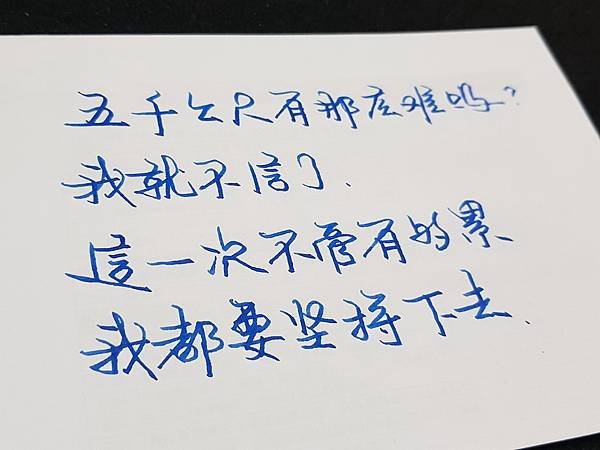 五千公尺有那庅难吗?
我就不信了.
這一次不管有的累
我都要坚持下去.